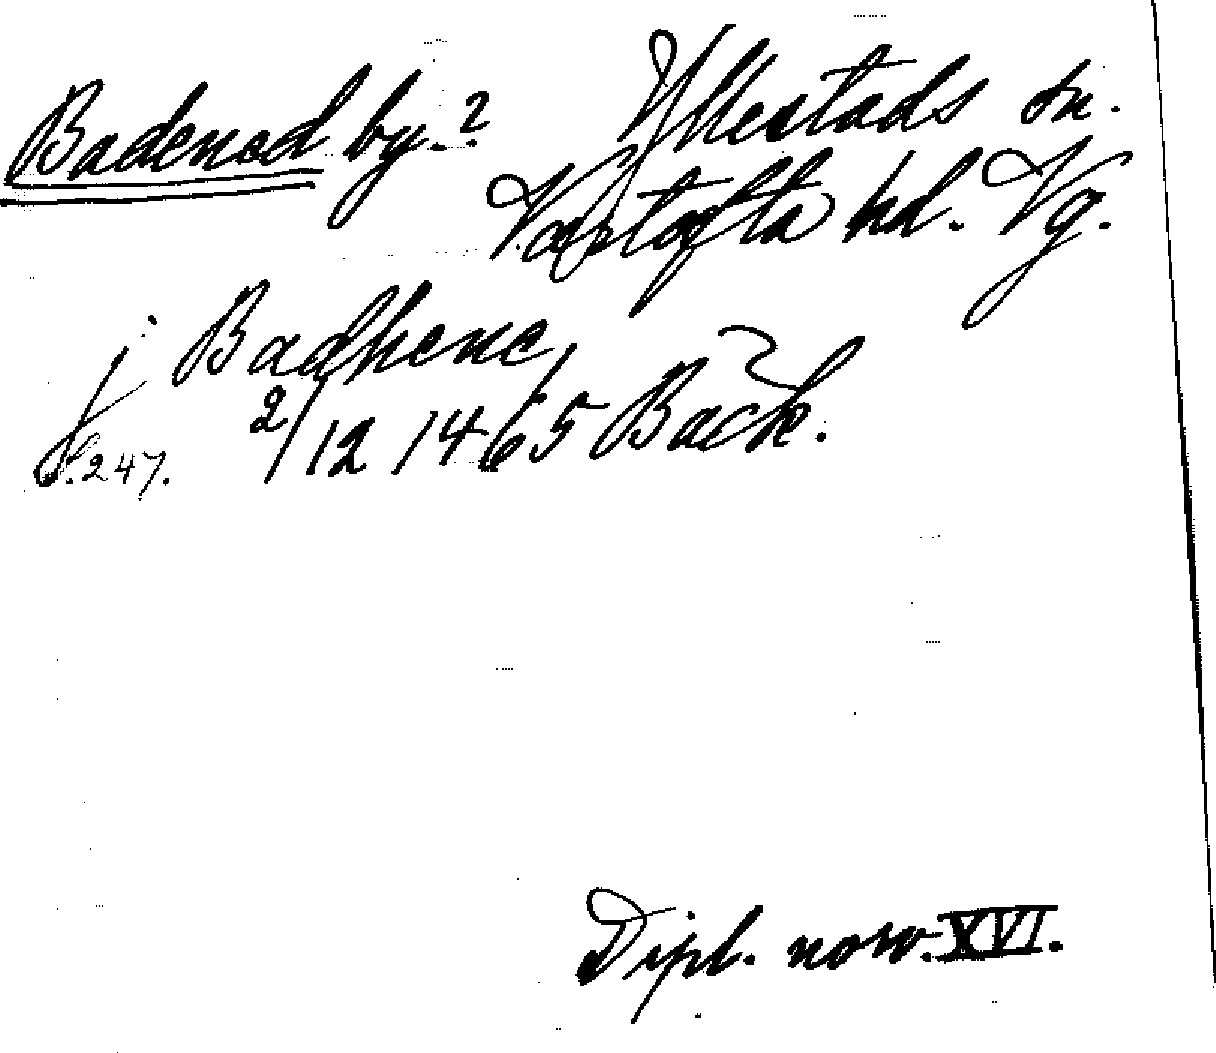 Badened by.? Yllestads sn.
Vartofta hd. Vg.
j Badhene,
S. 247. 2/12 1465 Back.
Dipl. norv. XVI.